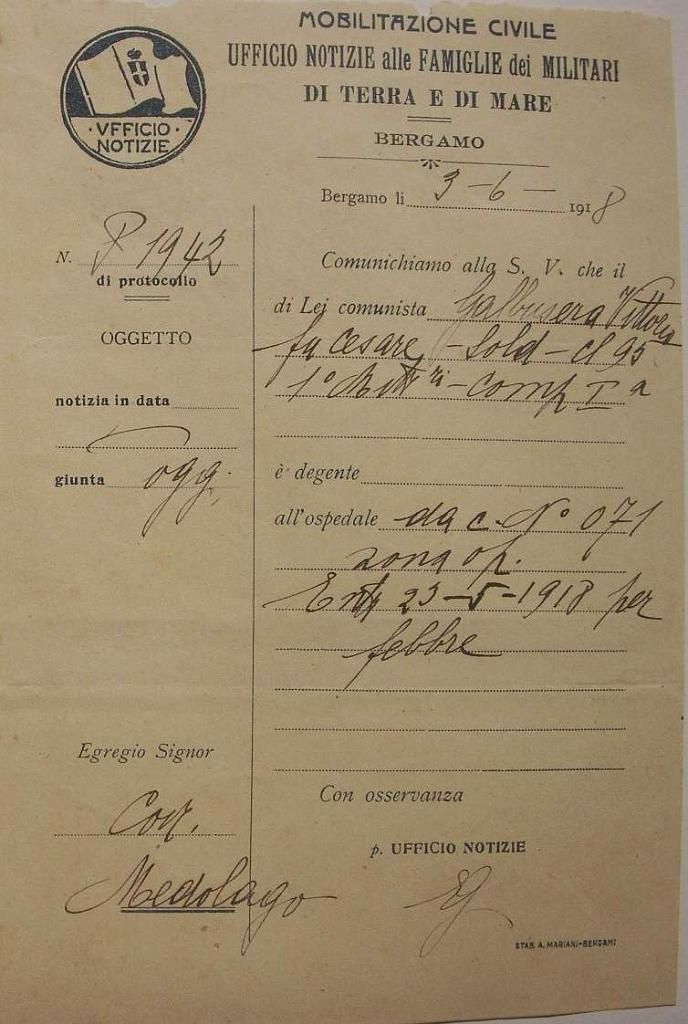 MOBILITAZIONE CIVILE
UFFICIO NOTIZIE alle FAMIGLIE dei MILITARI
DI TERRA E DI MARE
BERGAMO
VFFICIO
NOTIZIE
Bergamo li 3-6- 1918
N. P 1942
di protocollo
OGGETTO
notizia in data
giunta ogg.
Comunichiamo alla S. V. che il
di Lei comunista Galbusera Vittorio
fu Cesare - Sold - cl 95
1° - Comp I a
è degente
all'ospedale da c. N° 071
zona op.
23-5-1918 per
febbre
Egregio Signor
Medolago
Con osservanza
p. UFFICIO NOTIZIE
STAB. A. MARIANI-BERGAMO